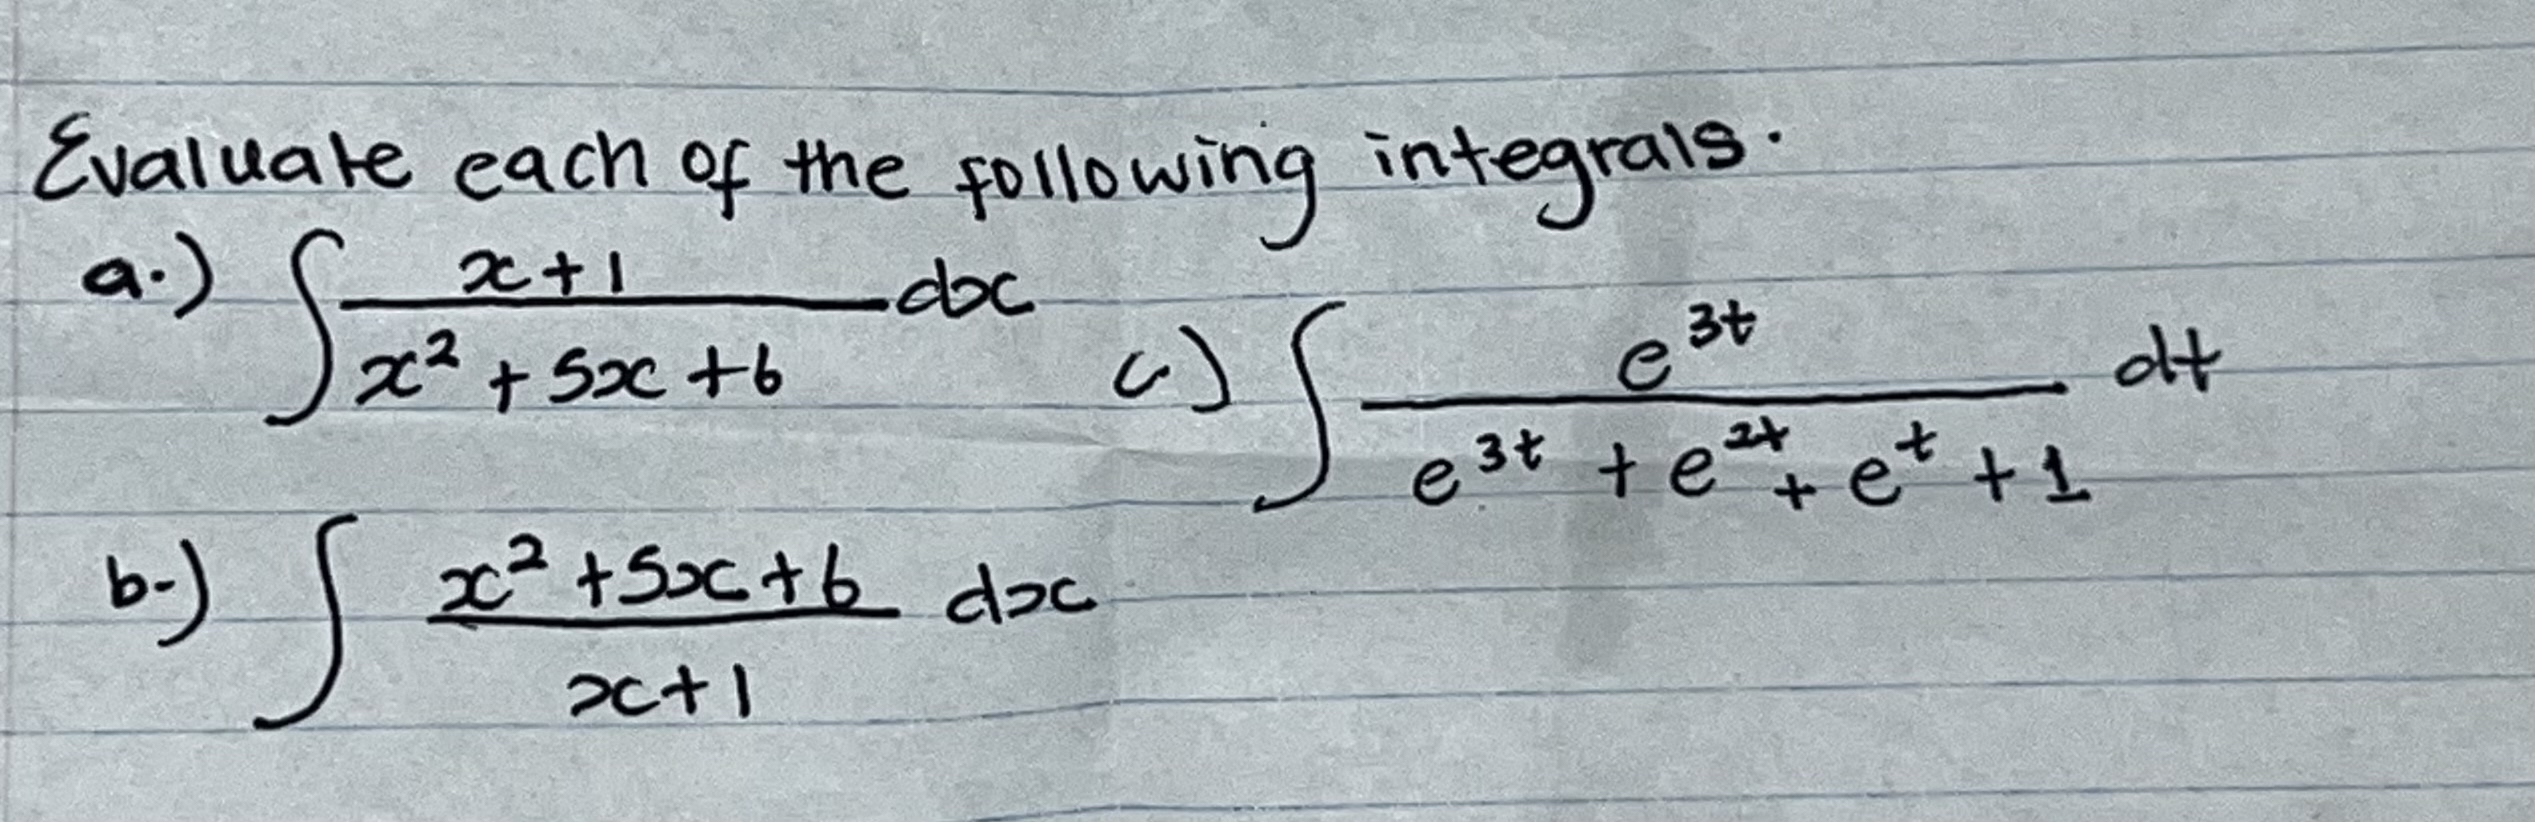 Evaluate each of the following integrals.
a.) ∫ (x+1)/(x² + 5x + 6) dx
c.) ∫ e^{3t}/(e^{3t} + e^{2t} + e^{t} + 1) dt
b.) ∫ (x² + 5x + 6)/(x+1) dx